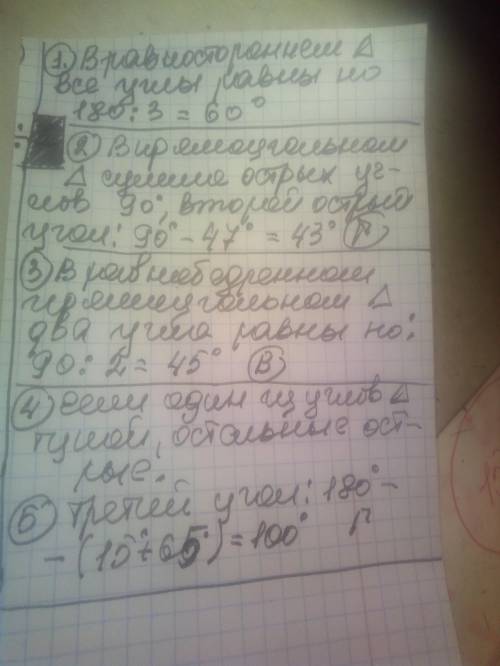 1. В равностороннем △
все углы равны по
180 : 3 = 60°
2 В прямоугольном
△ сумма острых уг-
лов 90°, второй острый
угол: 90° - 47° = 43° Г
3 В равнобедренном
прямоугольном △
два угла равны по:
90 : 2 = 45° В
4 если один из углов △
тупой, остальные ост-
рые.
5 Третий угол: 180° -
- (15° + 65°) = 100° Г